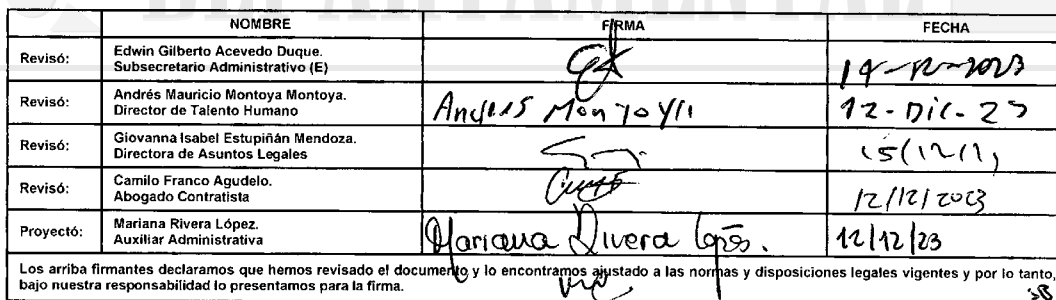 NOMBRE FIRMA FECHA
Revisó: Edwin Gilberto Acevedo Duque.
Subsecretario Administrativo (E)
14-12-2023
Revisó: Andrés Mauricio Montoya Montoya.
Director de Talento Humano
Andrés Montoya 12-Dic-23
Revisó: Giovanna Isabel Estupiñán Mendoza.
Directora de Asuntos Legales
Revisó: Camilo Franco Agudelo.
Abogado Contratista
12/12/2023
Proyectó: Mariana Rivera López.
Auxiliar Administrativa
Mariana Rivera López. 12/12/23
Los arriba firmantes declaramos que hemos revisado el documento y lo encontramos ajustado a las normas y disposiciones legales vigentes y por lo tanto,
bajo nuestra responsabilidad lo presentamos para la firma.